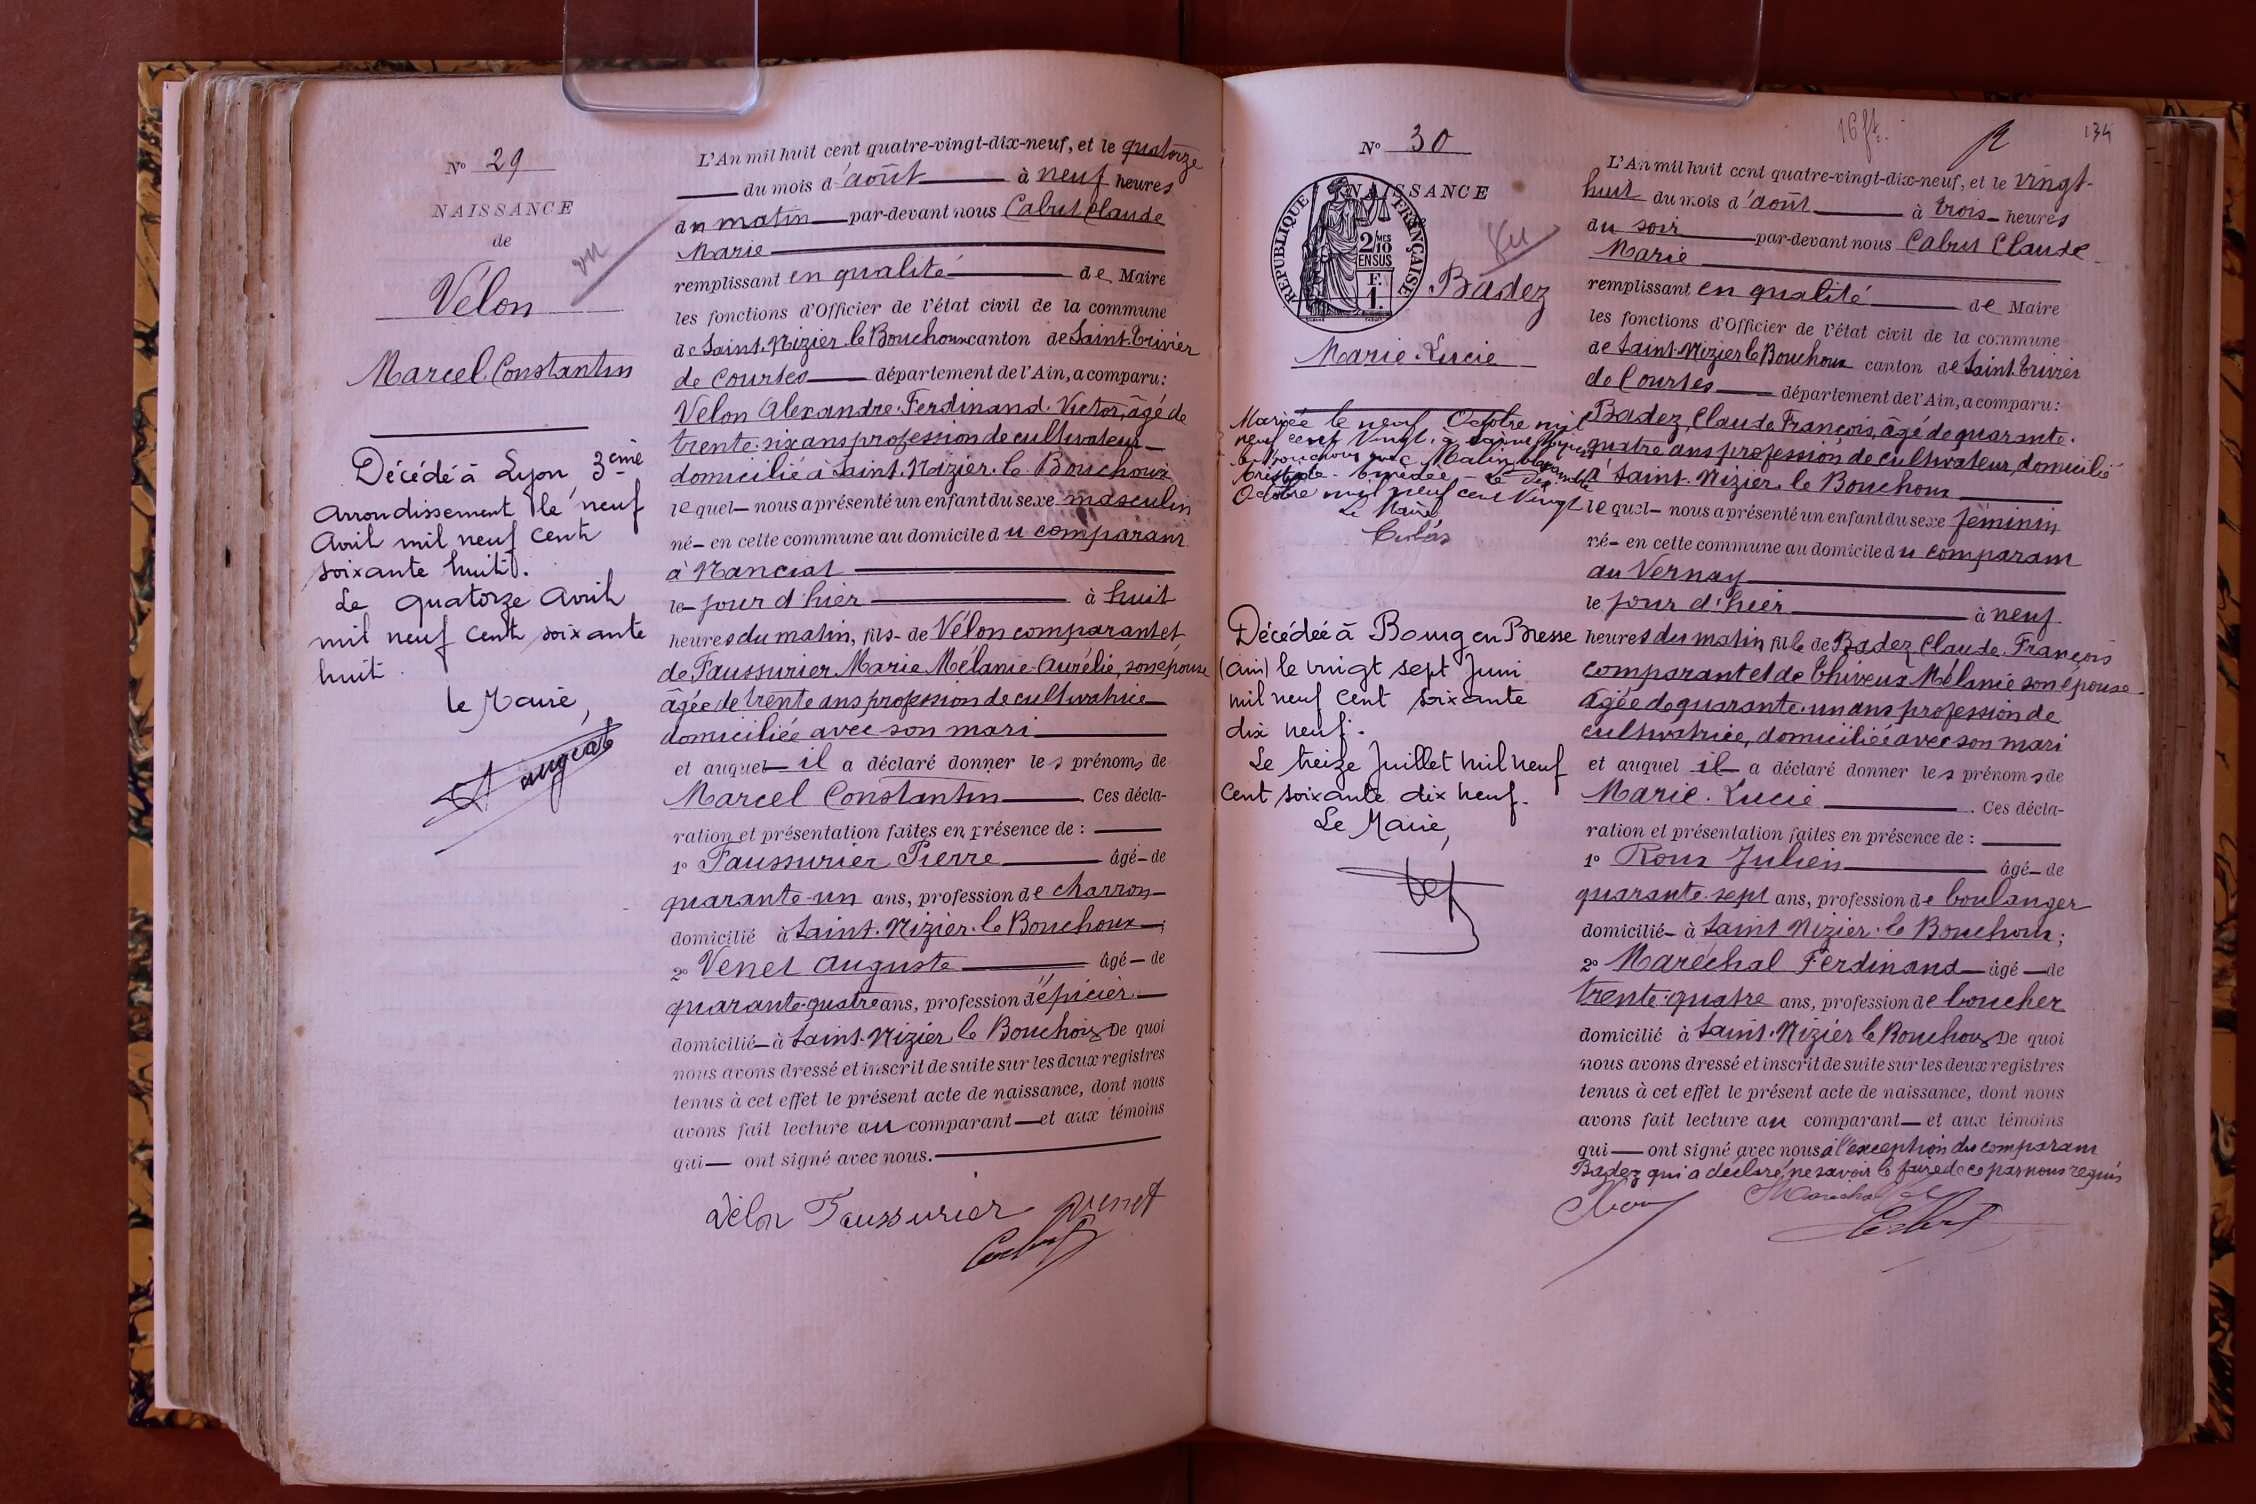 N° 29
NAISSANCE
de
vu
Vélon
Marcel Constantin
Décédé à Lyon, 3ème
arrondissement le neuf
Avril mil neuf cent
soixante huit.
Le quatorze Avril
mil neuf cent soixante
huit.
le Maire,
L'An mil huit cent quatre-vingt-dix-neuf, et le quatorze
du mois d'août à neuf heures
du matin par-devant nous Cabut Claude
Marie
remplissant en qualité de Maire
les fonctions d'Officier de l'état civil de la commune
de Saint-Nizier-le-Bouchoux canton de Saint-Trivier
de Courtes département de l'Ain, a comparu:
Velon Alexandre Ferdinand Victor, âgé de
trente-six ans profession de cultivateur
domicilié à Saint-Nizier-le-Bouchoux
lequel nous a présenté un enfant du sexe masculin
né en cette commune au domicile du comparant
à Nancial
le jour d'hier à huit
heures du matin, fils de Vélon comparant et
de Faussurier Marie Mélanie-Aurélie, son épouse
âgée de trente ans profession de cultivatrice
domiciliée avec son mari
et auquel il a déclaré donner les prénoms de
Marcel Constantin Ces décla-
ration et présentation faites en présence de :
1° Faussurier Pierre âgé de
quarante-un ans, profession de charron
domicilié à Saint-Nizier-le-Bouchoux;
2° Venet Auguste âgé de
quarante-quatre ans, profession d'épicier
domicilié à Saint-Nizier le Bouchoux De quoi
nous avons dressé et inscrit de suite sur les deux registres
tenus à cet effet le présent acte de naissance, dont nous
avons fait lecture au comparant et aux témoins
qui ont signé avec nous.
Vélon Faussurier Venet
Cabut
16 ft.
134
N° 30
NAISSANCE
RÉPUBLIQUE FRANÇAISE
2/10 MES
EN SUS
F.
1.
Vu
Badez
Marie-Lucie
Mariée le neuf Octobre mil
neuf cent Vingt, à Saint Nizier
le Bouchoux avec Malin
Le dix
Octobre mil neuf cent Vingt
Le Maire
Décédée à Bourg en Bresse
(Ain) le vingt sept Juin
mil neuf cent soixante
dix neuf.
Le treize Juillet mil neuf
cent soixante dix neuf.
Le Maire,
L'An mil huit cent quatre-vingt-dix-neuf, et le vingt-
huit du mois d'août à trois heures
du soir par-devant nous Cabut Claude
Marie
remplissant en qualité de Maire
les fonctions d'Officier de l'état civil de la commune
de Saint-Nizier le Bouchoux canton de Saint-Trivier
de Courtes département de l'Ain, a comparu:
Badez, Claude François, âgé de quarante-
quatre ans profession de cultivateur, domicilié
à Saint-Nizier le Bouchoux
lequel nous a présenté un enfant du sexe féminin
né en cette commune au domicile du comparant
au Vernay
le jour d'hier à neuf
heures du matin fille de Badez Claude François
comparant et de Thiveux Mélanie son épouse
âgée de quarante-un ans profession de
cultivatrice, domiciliée avec son mari
et auquel il a déclaré donner les prénoms de
Marie-Lucie Ces décla-
ration et présentation faites en présence de :
1° Roux Julien âgé de
quarante-sept ans, profession de boulanger
domicilié à Saint Nizier-le Bouchoux;
2° Maréchal Ferdinand âgé de
trente-quatre ans, profession de boucher
domicilié à Saint-Nizier le Bouchoux De quoi
nous avons dressé et inscrit de suite sur les deux registres
tenus à cet effet le présent acte de naissance, dont nous
avons fait lecture au comparant et aux témoins
qui ont signé avec nous à l'exception du comparant
Badez qui a déclaré ne savoir le faire de ce par nous requis
Roux Maréchal
Cabut